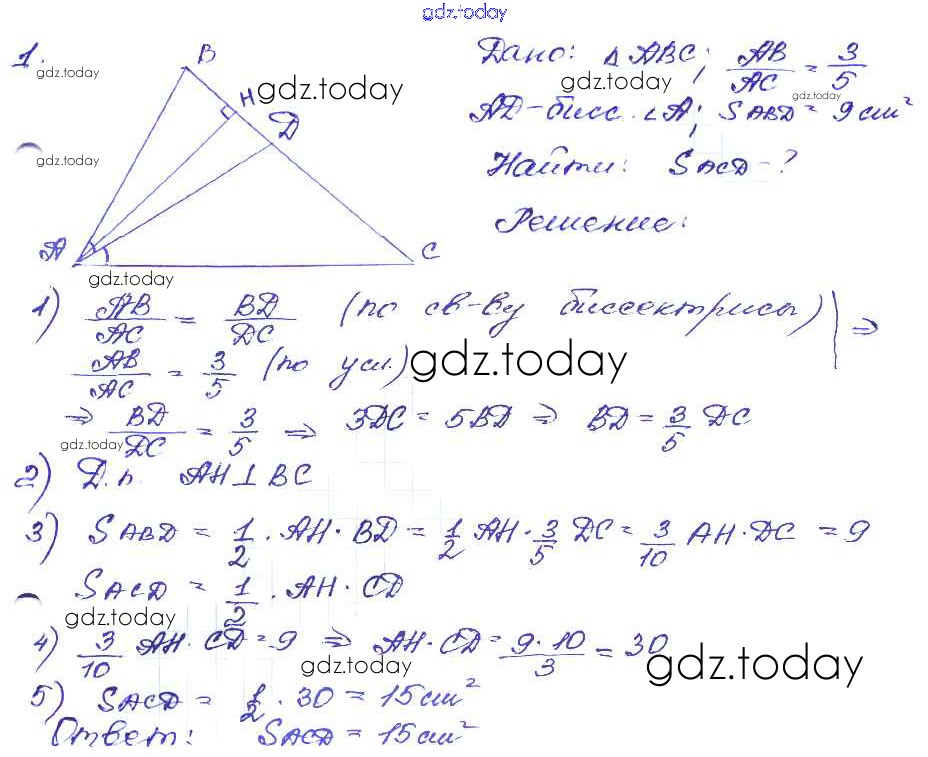 gdz.today
1.
gdz.today
gdz.today
B
gdz.today
H
D
A
C
gdz.today
Дано: △ABC; AB/AC = 3/5
gdz.today
gdz.today
AD-бисс. ∠A; SABD = 9 см²
Найти: SACD - ?
Решение:
1) AB/AC = BD/DC (по св-ву биссектрисы) | ⇒
AB/AC = 3/5 (по усл.)
gdz.today
⇒ BD/DC = 3/5 ⇒ 3DC = 5BD ⇒ BD = 3/5 DC
gdz.today
2) Д.п. AH⊥BC
3) SABD = 1/2 · AH · BD = 1/2 AH · 3/5 DC = 3/10 AH · DC = 9
SACD = 1/2 · AH · CD
gdz.today
4) 3/10 AH · CD = 9 ⇒ AH · CD = 9·10/3 = 30
gdz.today
gdz.today
5) SACD = 1/2 · 30 = 15 см²
Ответ: SACD = 15 см²